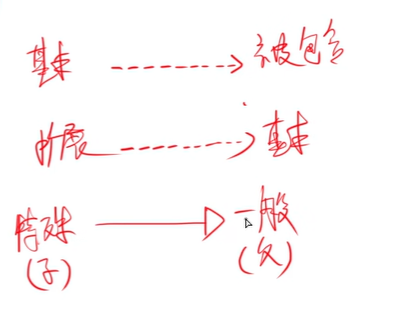 基本 被包含
扩展 基本
特殊 一般
(子) (父)